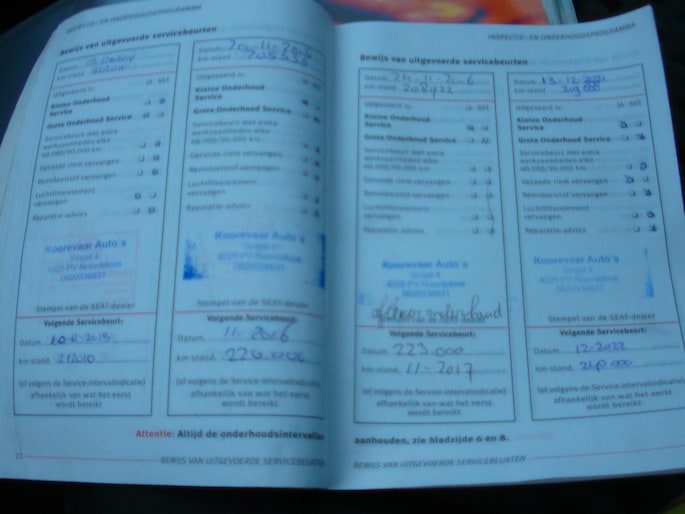 INSPECTIE- EN ONDERHOUDSPROGRAMMA
Bewijs van uitgevoerde servicebeurten
Datum
km-stand
Uitgevoerd is: JA NEE
Kleine Onderhoud
Service
Grote Onderhoud Service
Servicebeurt met extra
werkzaamheden elke
60.000/90.000 km
Getande riem vervangen
Remvloeistof vervangen
Luchtfilterelement
vervangen
Reparatie-advies
Koorevaar Auto's
Singel 4
4225 PV Noordeloos
Stempel van de SEAT-dealer
Volgende Servicebeurt:
Datum
km-stand
(of volgens de Service-intervalindicatie)
afhankelijk van wat het eerst
wordt bereikt
Datum
km-stand
Uitgevoerd is: JA NEE
Kleine Onderhoud
Service
Grote Onderhoud Service
Servicebeurt met extra
werkzaamheden elke
60.000/90.000 km
Getande riem vervangen
Remvloeistof vervangen
Luchtfilterelement
vervangen
Reparatie-advies
Koorevaar Auto's
Singel 4
4225 PV Noordeloos
Stempel van de SEAT-dealer
Volgende Servicebeurt:
Datum 11-2016
km-stand 220.000
(of volgens de Service-intervalindicatie)
afhankelijk van wat het eerst
wordt bereikt
Attentie: Altijd de onderhoudsintervallen
BEWIJS VAN UITGEVOERDE SERVICEBEURTEN
INSPECTIE- EN ONDERHOUDSPROGRAMMA
Bewijs van uitgevoerde servicebeurten
Datum 11-2016
km-stand
Uitgevoerd is: JA NEE
Kleine Onderhoud
Service
Grote Onderhoud Service
Servicebeurt met extra
werkzaamheden elke
60.000/90.000 km
Getande riem vervangen
Remvloeistof vervangen
Luchtfilterelement
vervangen
Reparatie-advies
Koorevaar Auto's
Singel 4
4225 PV Noordeloos
Stempel van de SEAT-dealer
Volgende Servicebeurt:
Datum 223.000
km-stand 11-2017
(of volgens de Service-intervalindicatie)
afhankelijk van wat het eerst
wordt bereikt
Datum 13-12-2021
km-stand
Uitgevoerd is: JA NEE
Kleine Onderhoud
Service
Grote Onderhoud Service
Servicebeurt met extra
werkzaamheden elke
60.000/90.000 km
Getande riem vervangen
Remvloeistof vervangen
Luchtfilterelement
vervangen
Reparatie-advies
Koorevaar Auto's
Singel 4
4225 PV Noordeloos
Stempel van de SEAT-dealer
Volgende Servicebeurt:
Datum 12-2022
km-stand
(of volgens de Service-intervalindicatie)
afhankelijk van wat het eerst
wordt bereikt
aanhouden, zie bladzijde 6 en 8.
BEWIJS VAN UITGEVOERDE SERVICEBEURTEN